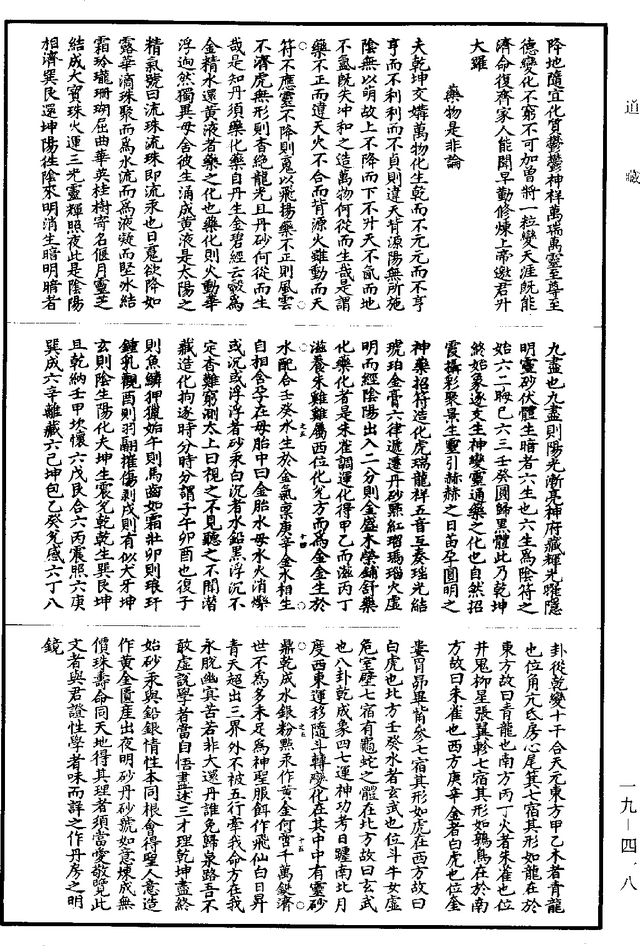 道藏
降地隨宜化質鬱鬱神祥萬瑞萬靈至尊至
德變化不窮不可加嘗將一粒變天涯既能
濟命復齊家人能聞早勤修煉上帝邀君升
大羅
藥物是非論
夫乾坤交媾萬物化生乾而不元元而不亨
亨而不利利而不貞則違天背源陽無所施
陰無以明故上不降而下不升天不氤而地
不氳既失冲和之造萬物何從而生哉是謂
藥不正而違天火不合而背源火雖動而天
符不應靈不降則䰟以飛揚藥不正則風雲
不濟虎無形則杳絕龍光且丹砂何從而生
哉是知丹須藥化藥自丹生金碧經云㲉為
金精水還黃液者藥之化也藥化則火動華
浮逈然獨異母舍彼生涌成黃液是太陽之
精氣號曰流珠流珠即流汞也日䰟欲降如
露華滴珠聚而為水流而為液凝而堅氷結
霜玲瓏珊瑚屈曲華英桂樹寄名偃月靈芝
結成大寶珠火運三光靈輝照夜此是陰陽
相濟巽艮還坤陽往陰來明消生暗明暗者
九盡也九盡則陽光漸亮神府藏輝光曜隱
明靈砂伏體生暗者六生也六生為陰符之
始六二晦巳六三壬癸圓歸黑體此乃乾坤
終始象逐支生神變靈通藥之化也自然招
霞攝彩聚景生靈引赫赫之日苗孕圓明之
神藥招符造化虎瑞龍祥五音互奏瑤光結
琥珀金膏六律遞遷丹砂㸃紅瑠瑪瑙火虛
明而經陰陽出入二分則金盛木榮鋪舒藥
化藥化者是朱雀調運化得甲乙而滋丙丁
滋養朱雞雞屬西位化兊方而為金金生於
水配合壬癸水生於金氣禀庚辛金水相生
自相含孕在母胎中曰金胎水母水火消爍
或沉或浮浮者砂汞白沉者水鉛黑浮沉不
定杳雖窮測太上曰視之不見聽之不聞潜
藏造化拘逐時分時分謂子午卯酉也復子
則魚鱗狎獵始午則馬齒如霜壯卯則琅玕
鍾乳觀酉則羽翮摧傷剥戌則有似犬牙坤
玄則陰生陽化夫坤生震兊乾乾生巽艮坤
且乾納壬甲坎懷六戊艮合六丙震照六庚
巽成六辛離藏六己坤包乙癸兊感六丁八
卦從乾變十干合天元東方甲乙木者青龍
也位角亢氐房心尾箕七宿其形如龍在於
東方故曰青龍也南方丙丁火者朱雀也位
井鬼柳星張翼軫七宿其形如鶉鳥在於南
方故曰朱雀也西方庚辛金者白虎也位奎
婁胃昴畢觜參七宿其形如虎在西方故曰
白虎也北方壬癸水者玄武也位斗牛女虛
危室壁七宿有龜蛇之體在北方故曰玄武
也八卦乾成象四七運神功考日躔南北月
度西東運移隨斗轉變化在其中中有靈砂
鼎乾成水銀粉㸃汞作黃金何啻千萬鎰濟
世不為多未足為神聖服餌作飛仙白日昇
青天超出三界外不被五行牽我命方在我
永脫幽冥苦若非大還丹誰免歸泉路吾不
敢虛說學者當自悟畫床三才理乾坤盡終
始砂汞與鉛銀情性本同根會得聖人意造
作黃金匱産出夜明砂丹砂號如意煉成無
價珠壽命同天地得其理者須當愛敬覽此
文者與君證性學者味而詳之作丹房之明
鏡
一九—四一八